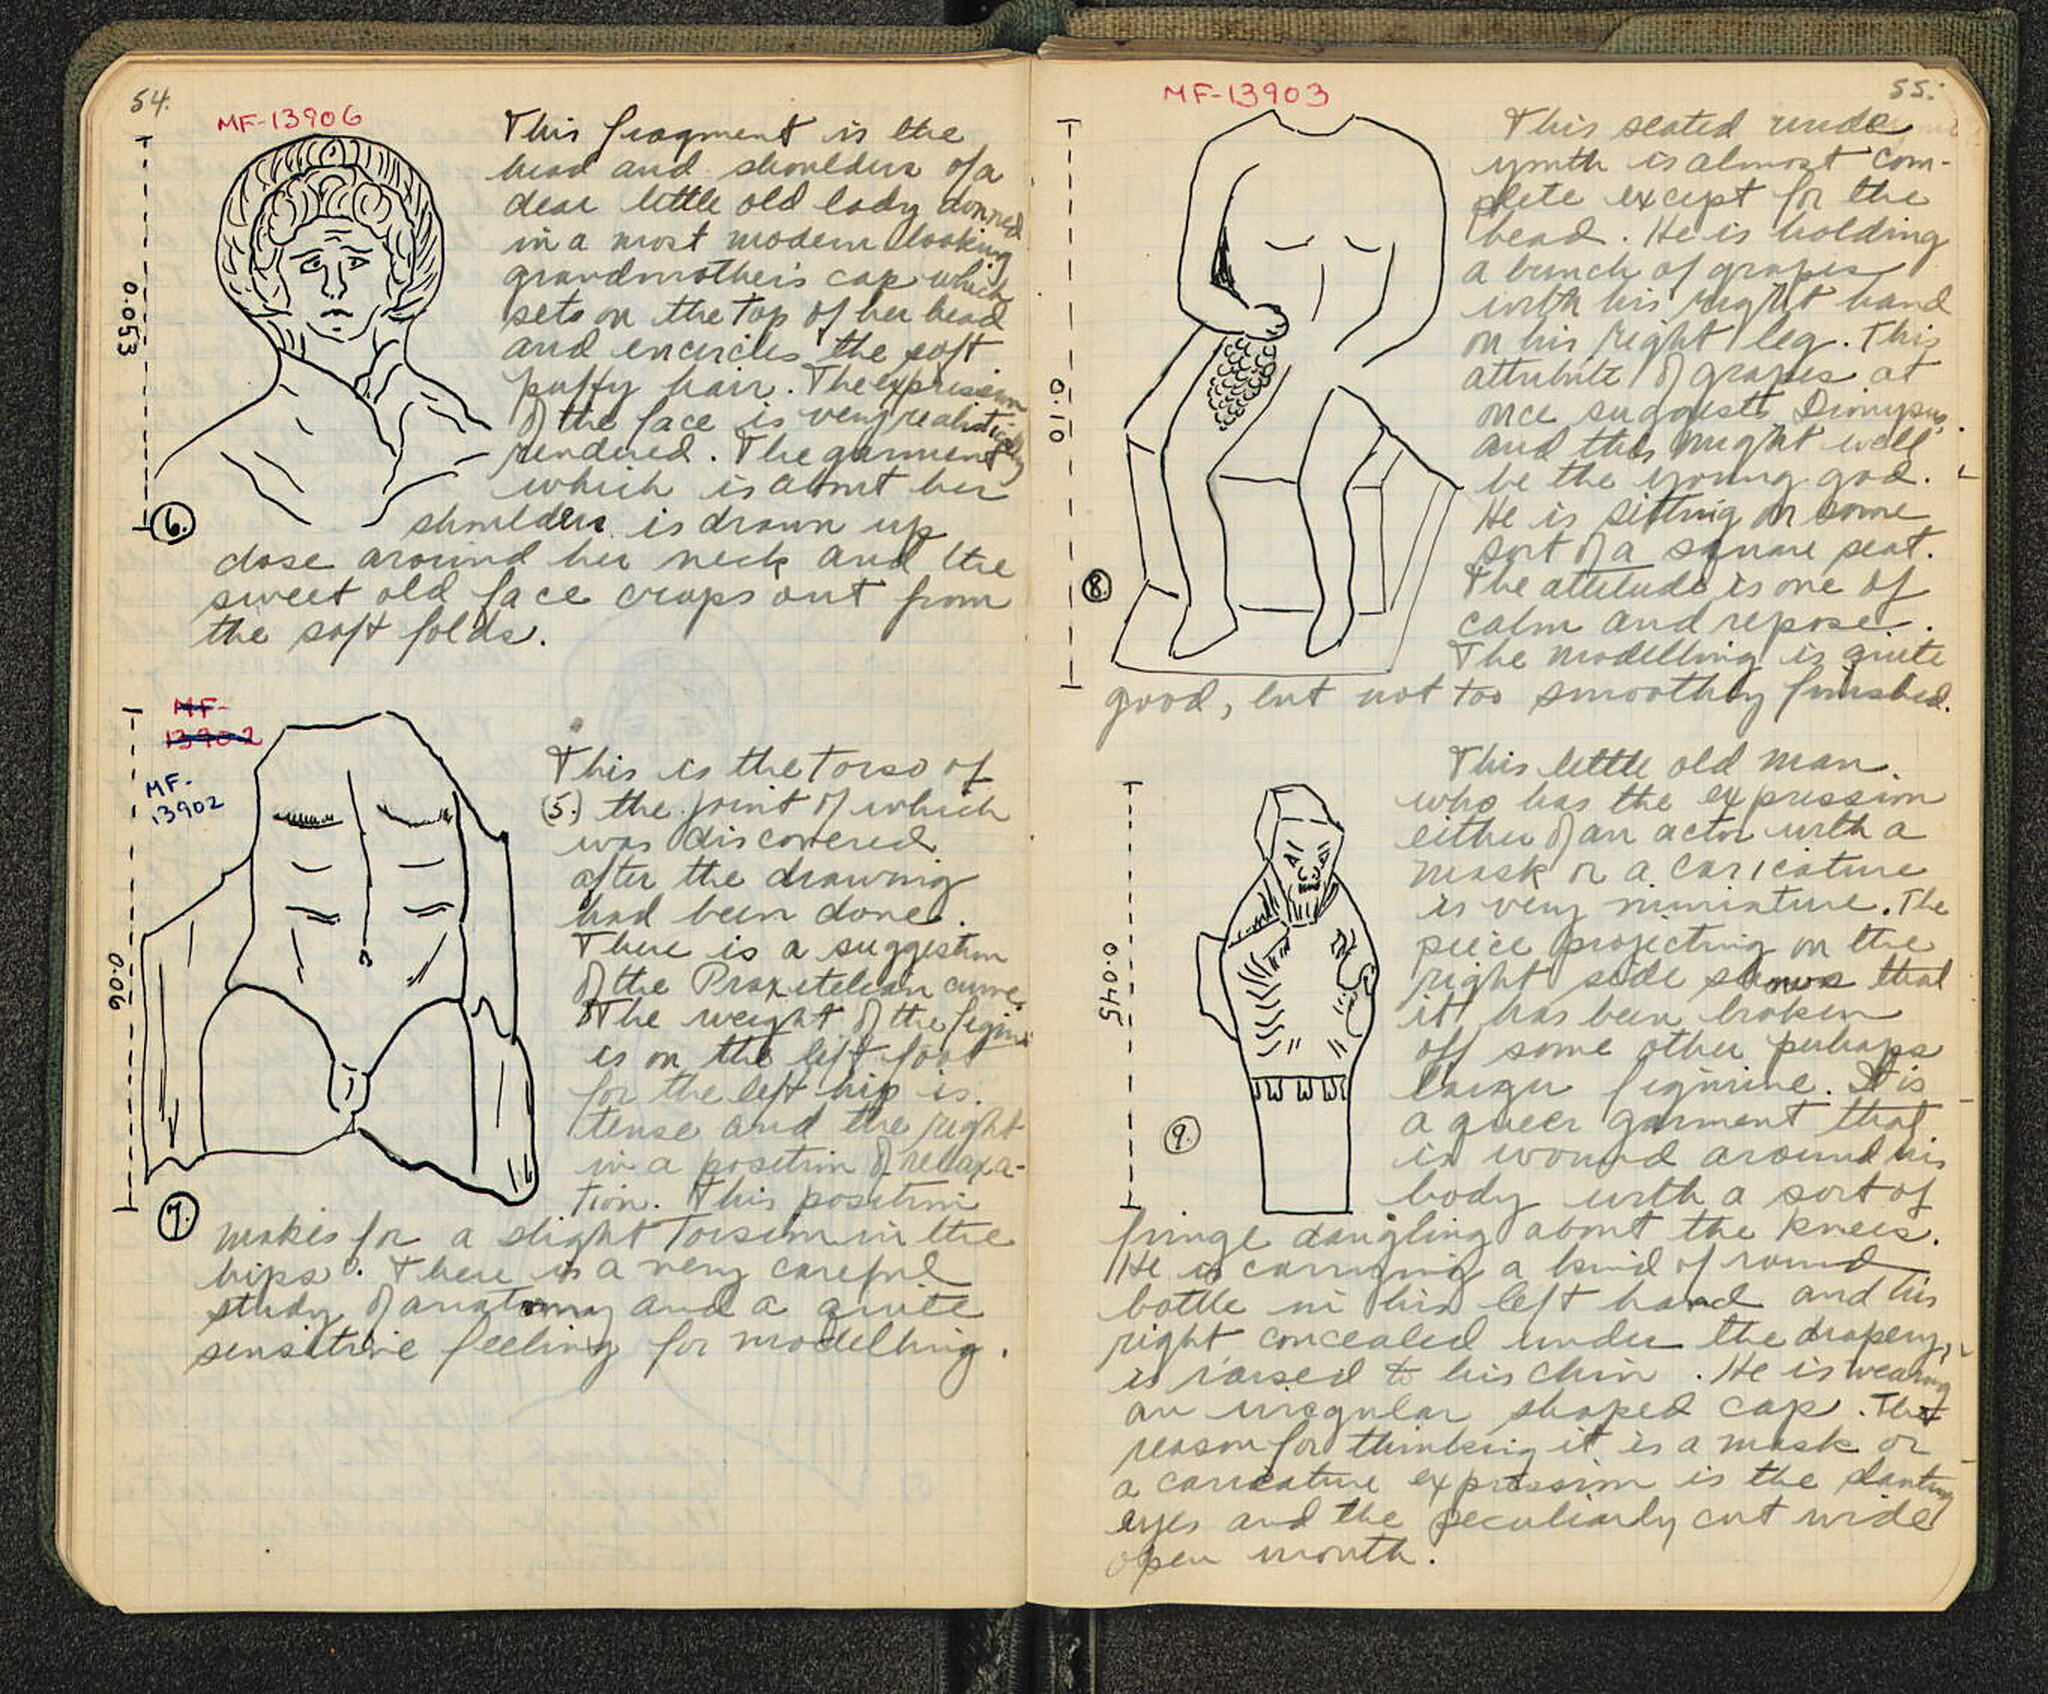 54.
MF-13906
0.053
6.
This fragment is the
head and shoulders of a
dear little old lady donned
in a most modern looking
grandmother's cap which
sets on the top of her head
and encircles the soft
puffy hair. The expression
of the face is very realistically
rendered. The garment
which is about her
shoulders is drawn up
close around her neck and the
sweet old face crops out from
the soft folds.
MF-
13902
MF-
13902
0.06
7.
This is the torso of
(5.) the joint of which
was discovered
after the drawing
had been done.
There is a suggestion
of the Praxitelean curve.
The weight of the figure
is on the left foot
for the left hip is
tense and the right
in a position of relaxa-
tion. This position
makes for a slight torsion in the
hips. There is a very careful
study of anatomy and a quite
sensitive feeling for modelling.
55.
MF-13903
0.10
8.
This seated nude
youth is almost com-
plete except for the
head. He is holding
a bunch of grapes
with his right hand
on his right leg. This
attribute of grapes at
once suggests Dionysus,
and this might well
be the young god.
He is sitting on some
sort of a square seat.
The attitude is one of
calm and repose.
The modelling is quite
good, but not too smoothly finished.
0.045
9.
This little old man
who has the expression
either of an actor with a
mask or a caricature
is very miniature. The
peice projecting on the
right side shows that
it has been broken
off some other perhaps
larger figurine. It is
a queer garment that
is wound around his
body with a sort of
fringe dangling about the knees.
He is carrying a kind of round
bottle in his left hand and his
right concealed under the drapery,
is raised to his chin. He is wearing
an irregular shaped cap. The
reason for thinking it is a mask or
a caricature expression is the slanting
eyes and the peculiarly cut wide
open mouth.